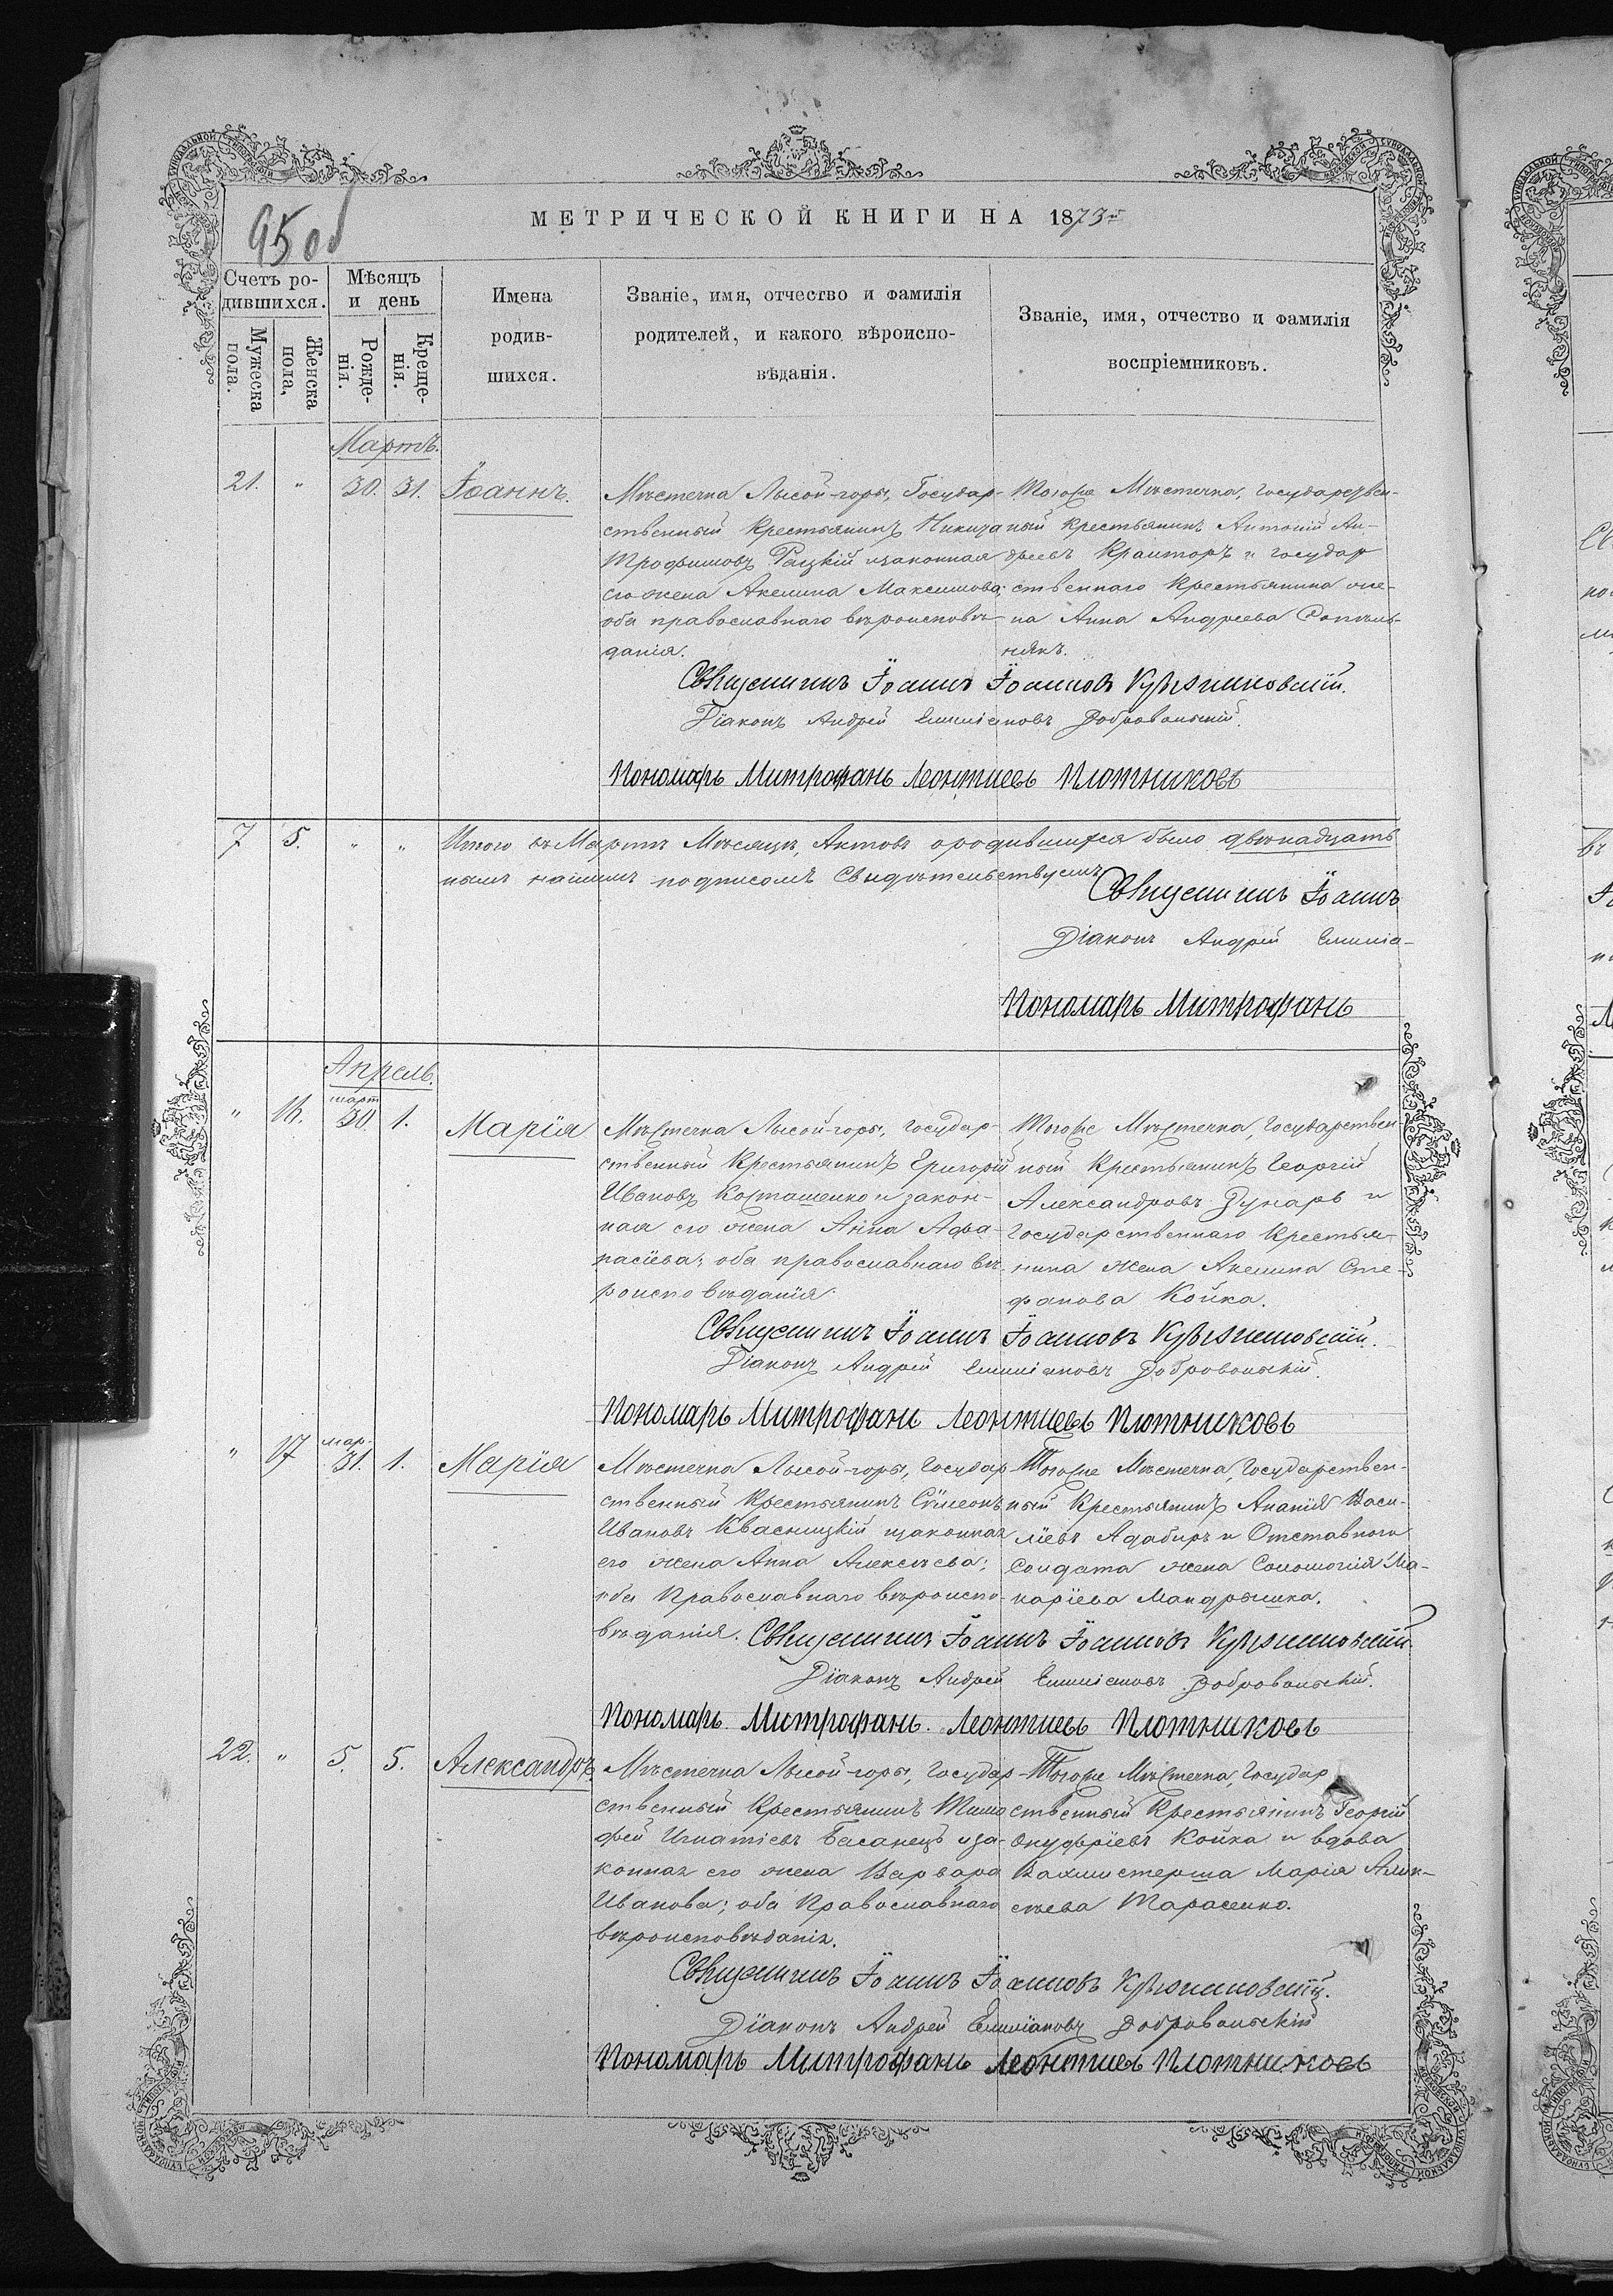 95 об
МЕТРИЧЕСКОЙ КНИГИ НА 1873
Счетъ ро-
дившихся.
Мужеска пола.
Женска пола,
Мѣсяцъ
и день
Рожде-
нія.
Креще-
нія.
Имена
родив-
шихся.
Званіе, имя, отчество и фамилія
родителей, и какого вѣроиспо-
вѣданія.
Званіе, имя, отчество и фамилія
воспріемниковъ.
Мартъ.
21. " 30. 31. Іоаннъ.
Мѣстечка Лысой-горы, Государ-
ственный Крестьянинъ Никита
Трофимовъ Рацкій изаконная
его жена Акелина Максимова;
оба православнаго вѣроисповѣ-
данія.
Тогоже Мѣстечка, государствен-
ный Крестьянинъ Антоній Ан-
дреевъ Крамторъ и государ
ственнаго Крестьянина же-
на Анна Андреева
някъ.
Священникъ Іоаннъ Іоанновъ
Діаконъ Андрей Емиліановъ Добровольскій.
Пономарь Митрофанъ Леонтиевъ Плотниковъ
7 5. " " Итого въ Мартѣ Мѣсяцѣ, Актовъ ородившихся было двѣнадцать
нымъ нашимъ подписомъ Свидѣтельствуемъ
Священникъ Іоаннъ
Діаконъ Андрей Емиліа-
Пономарь Митрофанъ
Апрель.
" 16. март 30 1. Марія
Мѣстечка Лысой-горы, государ-
ственный Крестьянинъ Григорій
Ивановъ Косташенко и закон-
ная его жена Анна Афа-
насіева; оба православнаго вѣ-
роисповѣданія.
Тогоже Мѣстечка, Государствен
ный Крестьянинъ Георгій
Александровъ Дударь и
Государственнаго Крестья-
нина жена Акелина Сте-
фанова Койка.
Священникъ Іоаннъ Іоанновъ
Діаконъ Андрей Емиліановъ Добровольскій.
Пономарь Митрофанъ Леонтиевъ Плотниковъ
" 17 мар. 31. 1. Марія
Мѣстечка Лысой-горы, Государ
ственный Крестьянинъ Сѵмеонъ
Ивановъ Квасницкій изаконная
его жена Анна Алексѣева;
оба Православнаго вѣроиспо-
вѣданія.
Тогоже Мѣстечка, Государствен-
ный Крестьянинъ Ананія Васи-
ліевъ Адабиръ и Отставного
Солдата жена Соломонія Ма-
каріева Мандрышка.
Священникъ Іоаннъ Іоанновъ
Діаконъ Андрей Емиліановъ Добровольскій.
Пономарь Митрофанъ Леонтиевъ Плотниковъ
22. " 5. 5. Александръ
Мѣстечка Лысой-горы, Государ
ственный Крестьянинъ Тимо
фей Игнатіевъ Басанецъ иза-
конная его жена Варвара
Иванова; оба Православнаго
вѣроисповѣданія.
Тогоже Мѣстечка, Государ
ственный Крестьянинъ Георгій
Онуфріевъ Койка и вдова
Вахмистерша Марія Алек-
сѣева Тарасенко.
Священникъ Іоаннъ Іоанновъ
Діаконъ Андрей Емиліановъ Добровольскій
Пономарь Митрофанъ Леонтиевъ Плотниковъ